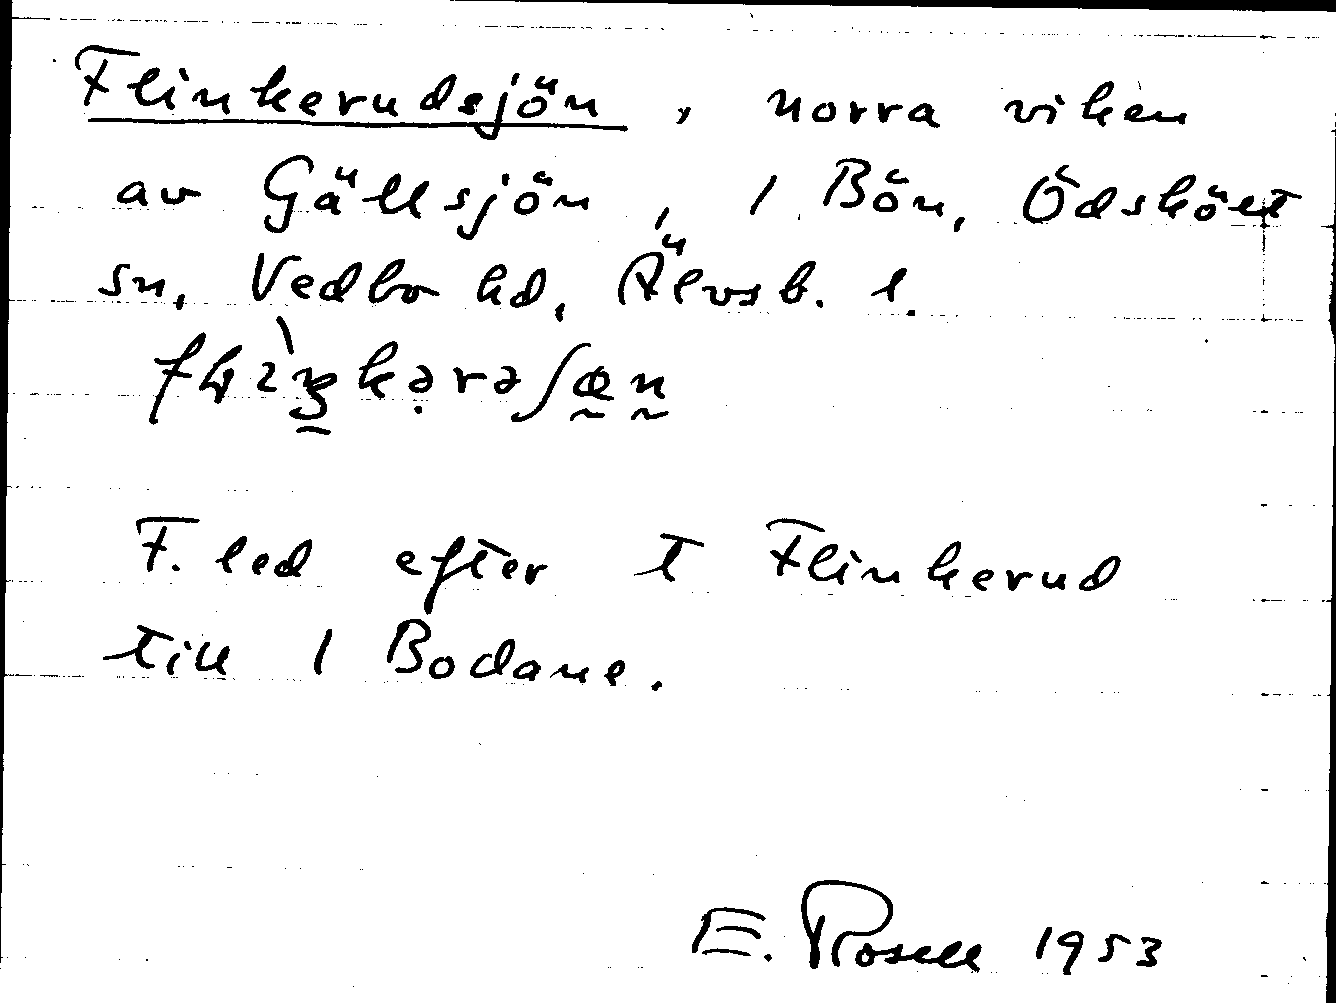 Flinkerudsjön, norra viken
av Gällsjön, 1 Bön, Ödskölt
sn, Vedbo hd, Älvsb. l.
F. led efter t Flinkerud
till 1 Bodane.
E. Rosell 1953